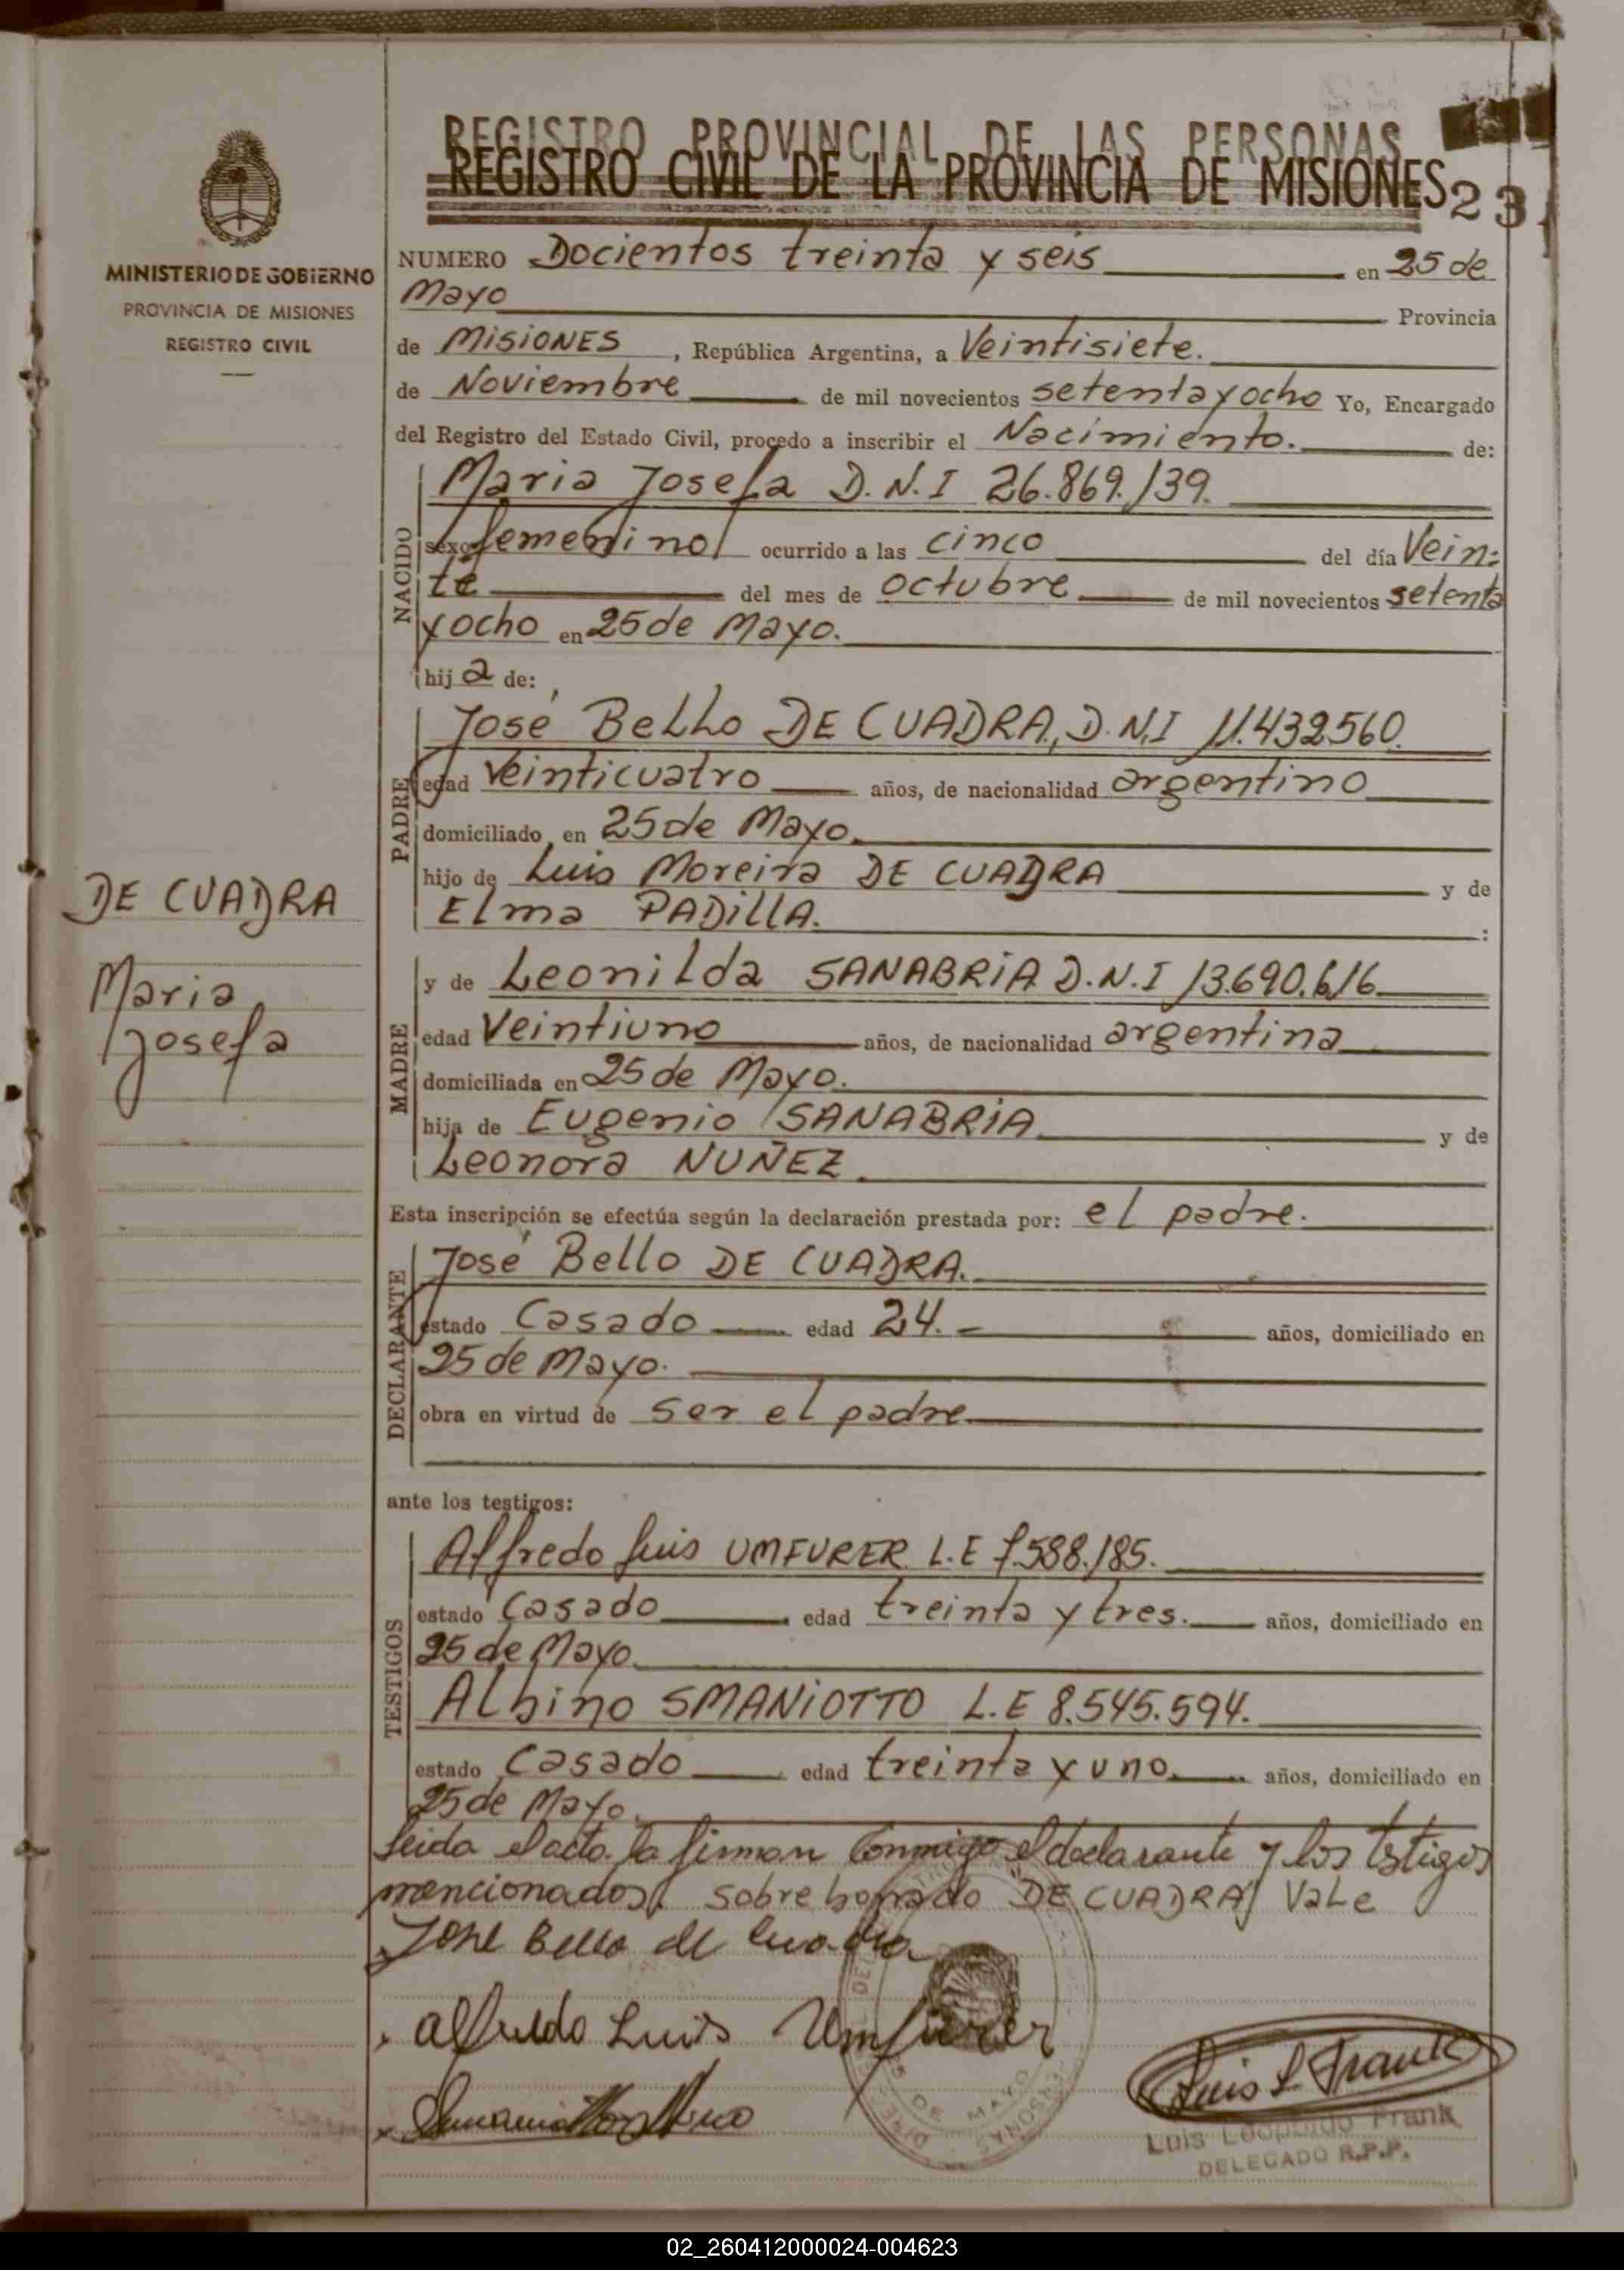 REGISTRO PROVINCIAL DE LAS PERSONAS
REGISTRO CIVIL DE LA PROVINCIA DE MISIONES 23
MINISTERIO DE GOBIERNO
PROVINCIA DE MISIONES
REGISTRO CIVIL
NUMERO Docientos treinta y seis en 25 de
Mayo Provincia
de MISIONES, República Argentina, a Veintisiete.
de Noviembre de mil novecientos setenta y ocho Yo, Encargado
del Registro del Estado Civil, procedo a inscribir el Nacimiento. de:
NACIDO
Maria Josefa D.N.I 26.869.139.
sexo femenino ocurrido a las cinco del día Vein=
te del mes de octubre de mil novecientos setenta
y ocho en 25 de Mayo.
hija de:
PADRE
José Bello DE CUADRA, D.N.I 11.432560.
edad Veinticuatro años, de nacionalidad argentino
domiciliado en 25 de Mayo.
hijo de Luis Moreira DE CUADRA y de
Elma PADILLA. :
DE CUADRA
Maria
Josefa
MADRE
y de Leonilda SANABRIA D.N.I 13.690.616
edad Veintiuno años, de nacionalidad argentina
domiciliada en 25 de Mayo.
hija de Eugenio SANABRIA y de
Leonora NUÑEZ
Esta inscripción se efectúa según la declaración prestada por: el padre.
DECLARANTE
José Bello DE CUADRA.
estado Casado edad 24.- años, domiciliado en
25 de Mayo.
obra en virtud de ser el padre
ante los testigos:
TESTIGOS
Alfredo Luis UMFURER L.E 7.588.185.
estado Casado edad treinta y tres. años, domiciliado en
25 de Mayo.
Albino SMANIOTTO L.E 8.545.594.
estado Casado edad treinta y uno años, domiciliado en
25 de Mayo.
Leida el acta la firman conmigo el declarante y los testigos
mencionados. sobre borrado DE CUADRA) Vale
Jose Bello de Cuadra
Alfredo Luis Umfurer
25 DE MAYO
Luis L. Frank
Luis Leopoldo Frank
DELEGADO R.P.P.
02_260412000024-004623